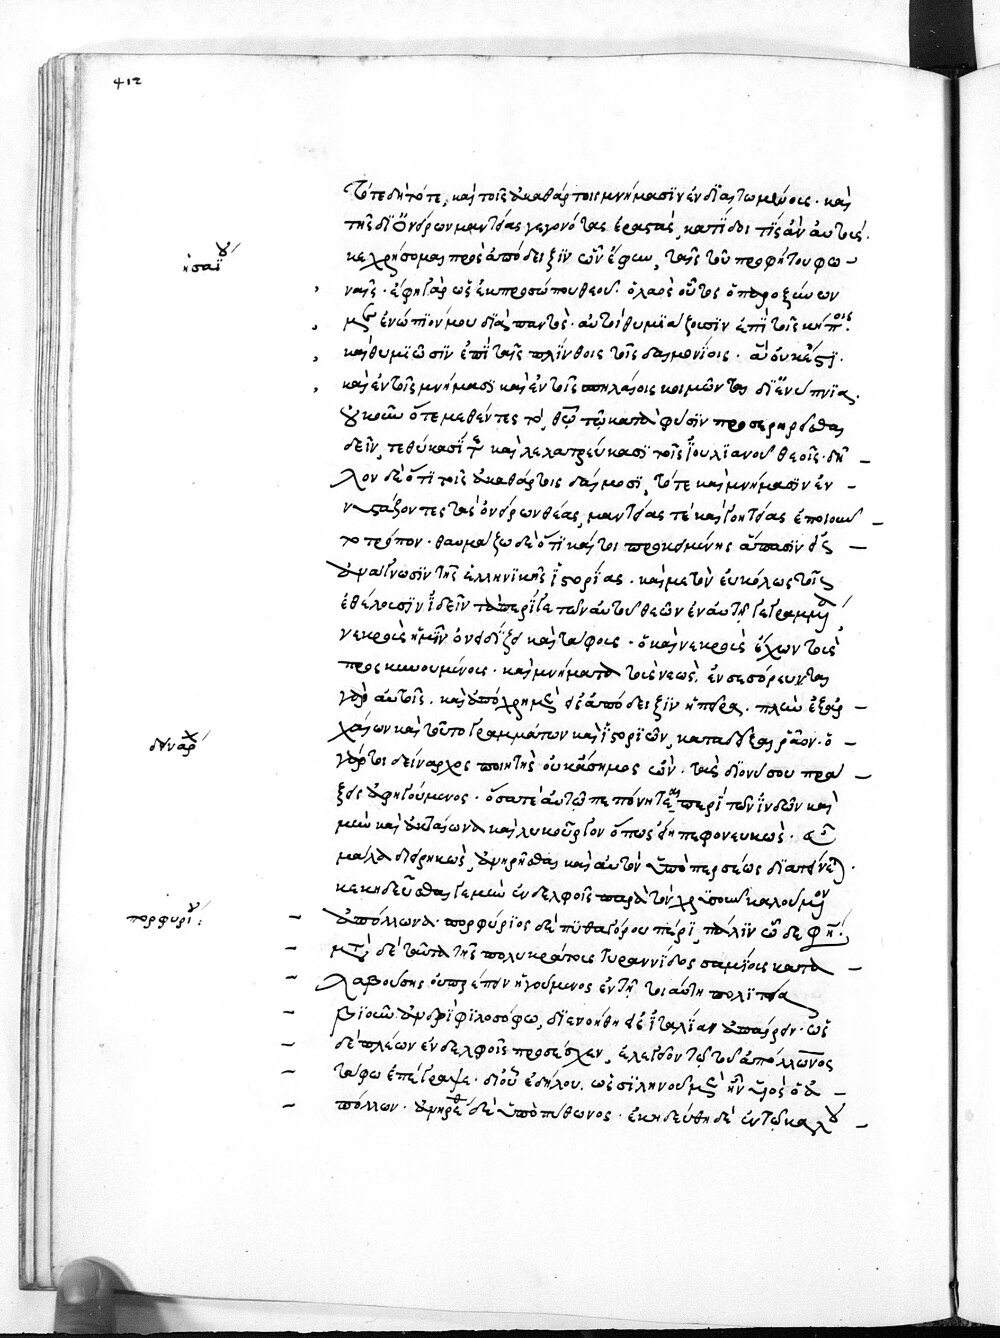 412
τότε δὴ τότε, καὶ τοῖς ἀκαθάρτοις μνήμασιν ἐνδιαιτωμένους. καὶ
τῆς δι' ὀνείρων μαντείας γεγονότας ἐραστὰς, κατίδοι τίς ἂν αὐτούς.
ἡσαΐου
κεχρήσομαι πρὸς ἀπόδειξιν ὧν ἔφην, ταῖς τοῦ προφήτου φω-
ναῖς. ἔφη γὰρ ὡς ἐκ προσώπου θεοῦ. ὁ λαὸς οὗτος ὁ παροξύνων
με ἐνώπιόν μου διὰ παντὸς. αὐτοὶ θυμιάζουσιν ἐπὶ τοῖς κήποις.
καὶ θυμιῶσιν ἐπὶ ταῖς πλίνθοις τοῖς δαιμονίοις. ἃ οὐκ ἔστι.
καὶ ἐν τοῖς μνήμασι καὶ ἐν τοῖς σπηλαίοις κοιμῶνται δι' ἐνύπνια.
οὐκοῦν ὅτε μεθέντες τὸ, θεῷ τῷ κατὰ φύσιν προσερηρεῖσθαι
δεῖν, τεθύκασί τε καὶ λελατρεύκασι τοῖς ἰουλιανοῦ θεοῖς. δῆ-
λον δὲ ὅτι τοῖς ἀκαθάρτοις δαίμοσι, τότε καὶ μνήμασιν ἐν-
νυστάζοντες τὰς ὀνείρων θέας, μαντείας τὲ καὶ γοητείας ἐποιοῦν-
το τρόπον. θαυμάζω δὲ ὅτι καί τοι προκειμένης ἅπασιν εἰς -
ἀνάγνωσιν τῆς ἑλληνικῆς ἱστορίας. καὶ μετὸν εὐκόλως τοῖς
ἐθέλουσιν ἰδεῖν τὰ περί γε τῶν αὐτοῦ θεῶν ἐν αὐτῇ γεγραμμένα,
νεκροὺς ἡμῖν ὀνειδίζει καὶ τάφους. ὁ καὶ νεκροὺς ἔχων τοὺς
προσκυνουμένους. καὶ μνήματα τοὺς νεὼς. ἐνσεσόρευνται
γὰρ αὐτοῖς. καὶ ἀπόχρη μὲν εἰς ἀπόδειξιν ἡ πεῖρα. πλὴν ἐξ ἀρ-
δείναρχ
χαίων καὶ τοῦτο γραμμάτων καὶ ἱστοριῶν, καταδεῖξαι ῥᾷον. ὁ -
γάρ τοι δείναρχος ποιητὴς οὐκ ἄσημος ὢν. τὰς διονύσου πρά-
ξεις ἀφηγούμενος. ὅσα τὲ αὐτῷ πεπόνηται περὶ τῶν ἰνδῶν καὶ
μὴν καὶ ἀκταίωνα καὶ λυκοῦργον ὅπως εἴη πεφονευκὼς. εὖ
μάλα διειρηκὼς, ἀνῃρῆσθαι καὶ αὐτὸν ὑπὸ περσέως διατείνεται.
κεκηδεῦσθαί γε μὴν ἐν δελφοῖς παρὰ τὸν χρυσοῦν καλούμενον
πορφυρίου:
ἀπόλλωνα. πορφύριος δὲ πυθαγόρου πέρι, πάλιν ὧδέ φησι,
μετὰ δὲ ταῦτα τῆς πολυκράτους τυραννίδος σαμίους κατα-
λαβούσης οὐ πρέπειν ἡγούμενος ἐν τῇ τοιαύτη πολιτεία
βιοῦν ἀνδρὶ φιλοσόφω, διενοήθη εἰς ἰταλίαν ἀπαίρειν. ὡς
δὲ πλέων ἐν δελφοῖς προσέσχεν, ἐλεγεῖον τῷ τοῦ ἀπόλλωνος
τάφω ἐπέγραψε. δι' οὗ ἐδήλου. ὡς σιληνοῦ μὲν ἦν υἱὸς ὁ ἀ-
πόλλων. ἀνηρέθη δὲ ὑπὸ πύθωνος. ἐκηδεύθη δὲ ἐν τῷ καλου-